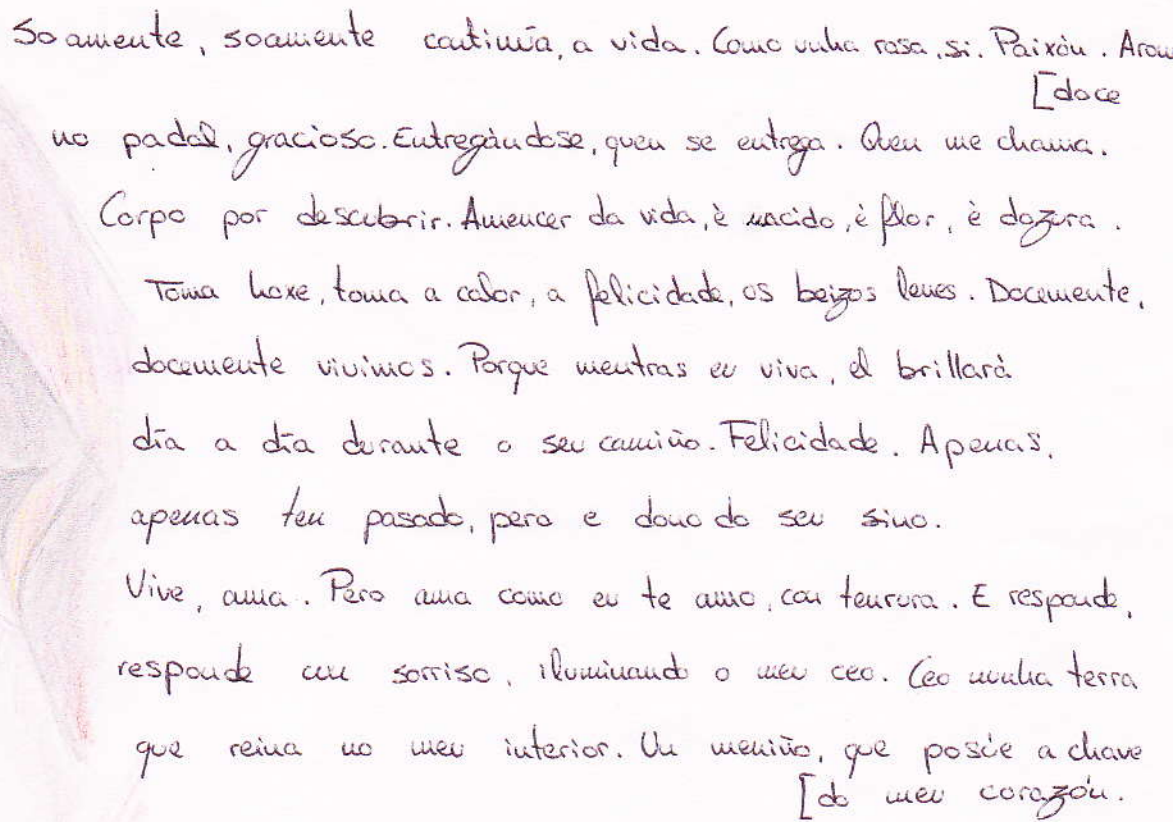 Soamente, soamente continúa, a vida. Como unha rosa, si. Paixón. Arom
[doce
no padal, gracioso. Entregándose, quen se entrega. Quen me chama.
Corpo por descubrir. Amencer da vida, è nacido, è flor, è dozura.
Toma hoxe, toma a calor, a felicidade, os beizos leves. Docemente,
docemente vivimos. Porque mentras eu viva, el brillarà
día a día durante o seu camiño. Felicidade. Apenas,
apenas ten pasado, pero e dono do seu sino.
Vive, ama. Pero ama como eu te amo, con tenrura. E responde,
responde cun sorriso, iluminando o meu ceo. Ceo nunha terra
que reina no meu interior. Un meniño, que posúe a chave
[do meu corazón.